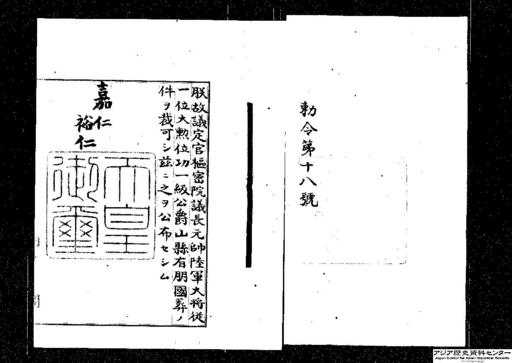 勅令第十八號
朕故議定官樞密院議長元帥陸軍大將從
一位大勲位功一級公爵山縣有朋國葬ノ
件ヲ裁可シ茲ニ之ヲ公布セシム
嘉仁
裕仁
天皇
御璽
アジア歴史資料センター
Japan Center for Asian Historical Records